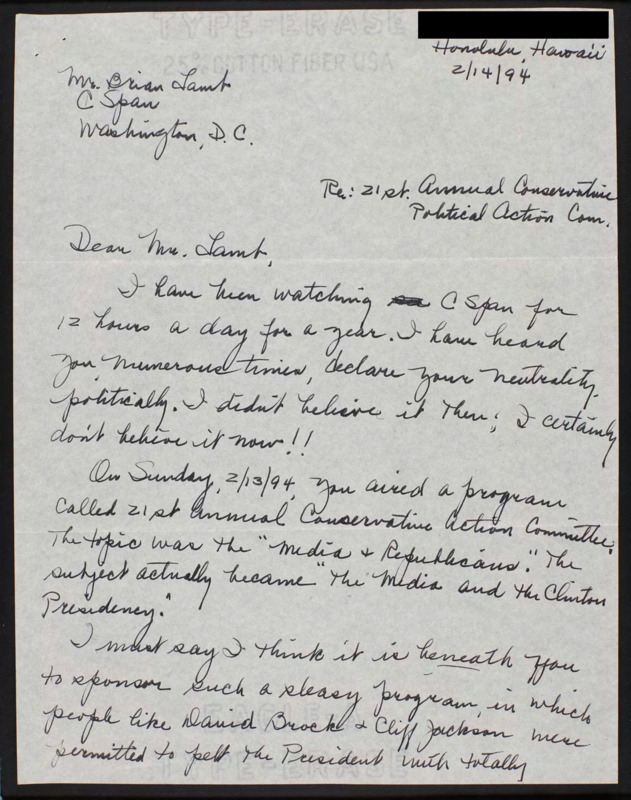 TYPE-ERASE
25% COTTON FIBER USA
Honolulu, Hawaii
2/14/94
Mr. Brian Lamb
C Span
Washington, D.C.
Re: 21st. Annual Conservative
Political Action Com.
Dear Mr. Lamb,
I have been watching C Span for
12 hours a day for a year. I have heard
you, numerous times, declare your neutrality
politically. I didn't believe it then; I certainly
don't believe it now!!
On Sunday, 2/13/94, you aired a program
called 21st Annual Conservative Action Committee.
The topic was the "Media & Republicans." The
subject actually became "the Media and the Clinton
Presidency."
I must say I think it is beneath you
to sponsor such a sleasy program, in which
people like David Brock & Cliff Jackson were
permitted to pelt the President with totally
EAGLE
TYPE-ERASE